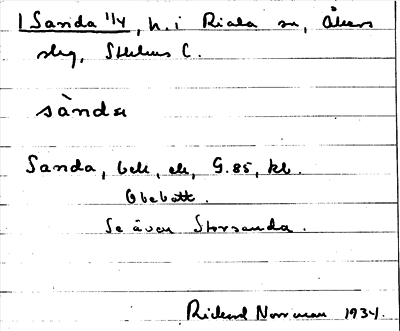 1 Sanda 1/4, h. i Riala sn, Åkers
skg, Sthlms C.
sànda
Sanda, beb, ek, G.85, kb.
Obebott.
Se även Storsanda.
Richard Norrman 1934.